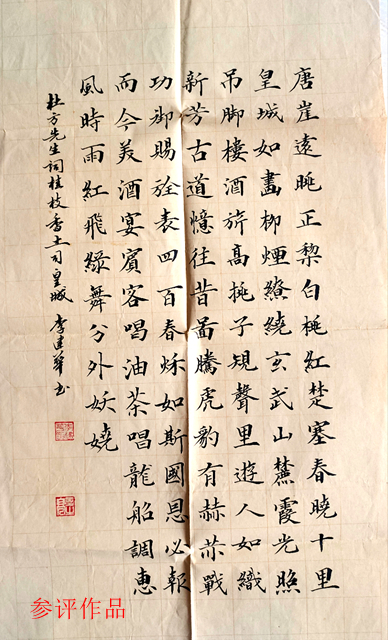 唐崖遠眺正黎白桃紅楚塞春曉十里
皇城如畫柳煙繚繞玄武山麓霞光照
吊脚樓酒旂高挑子規聲里遊人如織
新芳古道憶往昔啚騰虎豹有赫赤戰
功御賜旌表四百春秌如斯國恩必報
而今美酒宴賓客唱油茶唱龍船調惠
風時雨紅飛綠舞分外妖嬈
杜方先生词桂枝香土司皇城 李建華书
参评作品